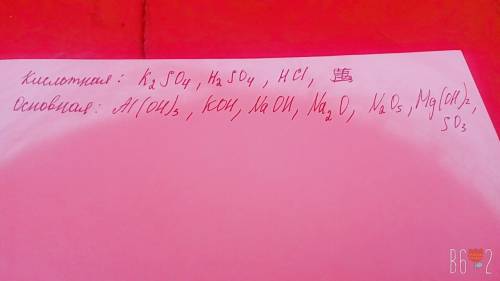 Кислотная: K₂SO₄, H₂SO₄, HCl,
Основная: Al(OH)₃, KOH, NaOH, Na₂O, N₂O₅, Mg(OH)₂,
SO₃
В6 2